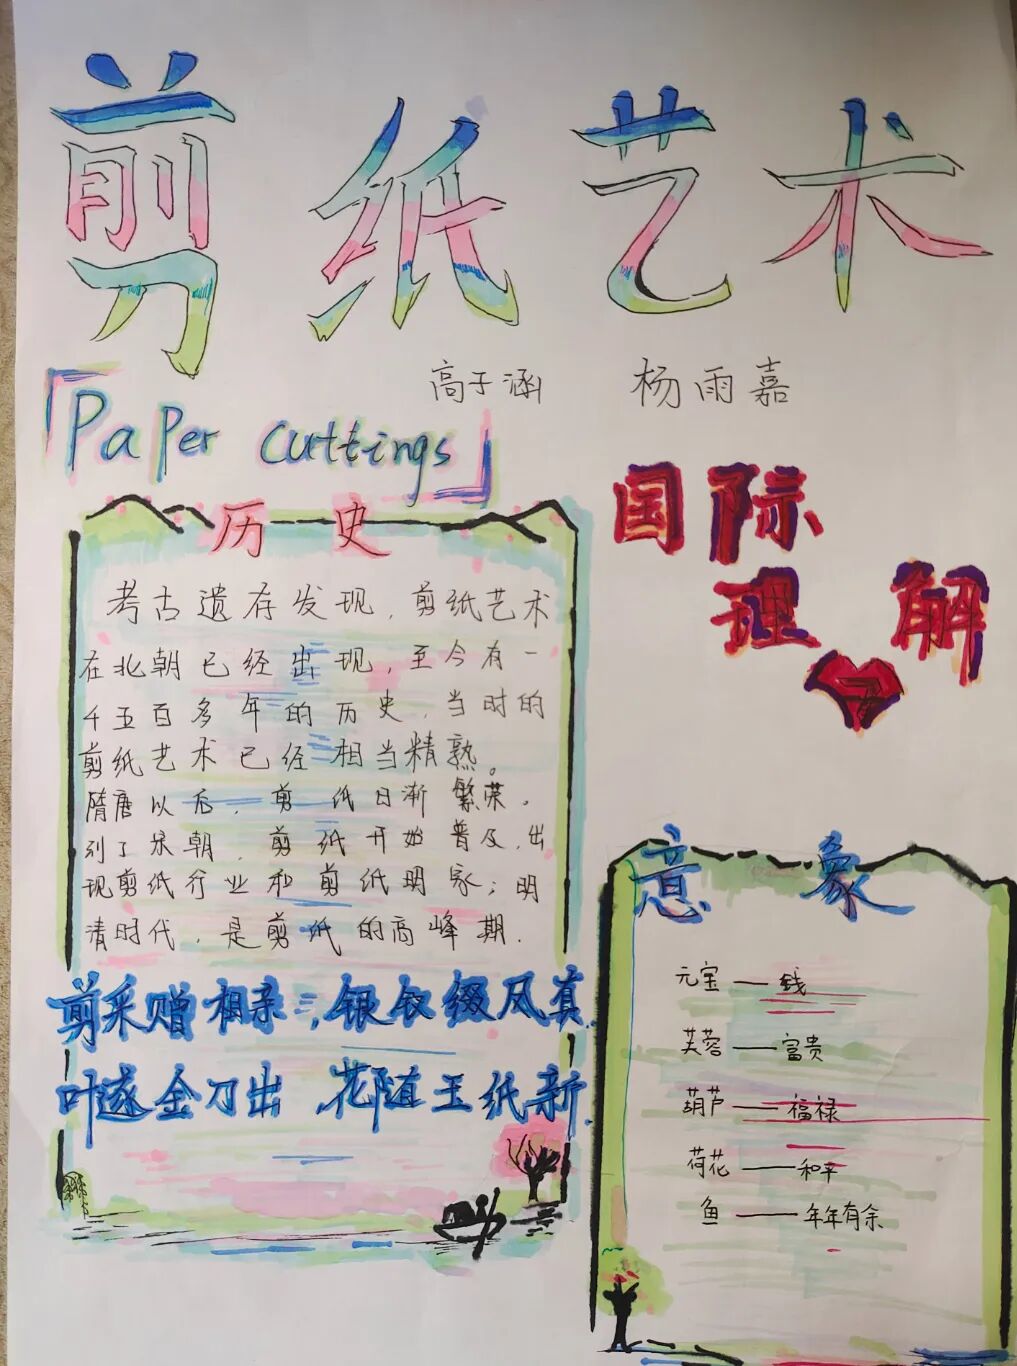 剪纸艺术
高子涵 杨雨嘉
「Paper cuttings」
国际
理解
历史
考古遗存发现,剪纸艺术
在北朝已经出现,至今有一
千五百多年的历史,当时的
剪纸艺术已经相当精熟。
隋唐以后,剪纸日渐繁荣。
到了宋朝,剪纸开始普及,出
现剪纸行业和剪纸明家;明
清时代,是剪纸的高峰期.
剪采赠相亲,银钗缀凤真.
叶逐金刀出,花随玉纸新.
意象
元宝——钱
芙蓉——富贵
葫芦——福禄
荷花——和平
鱼——年年有余